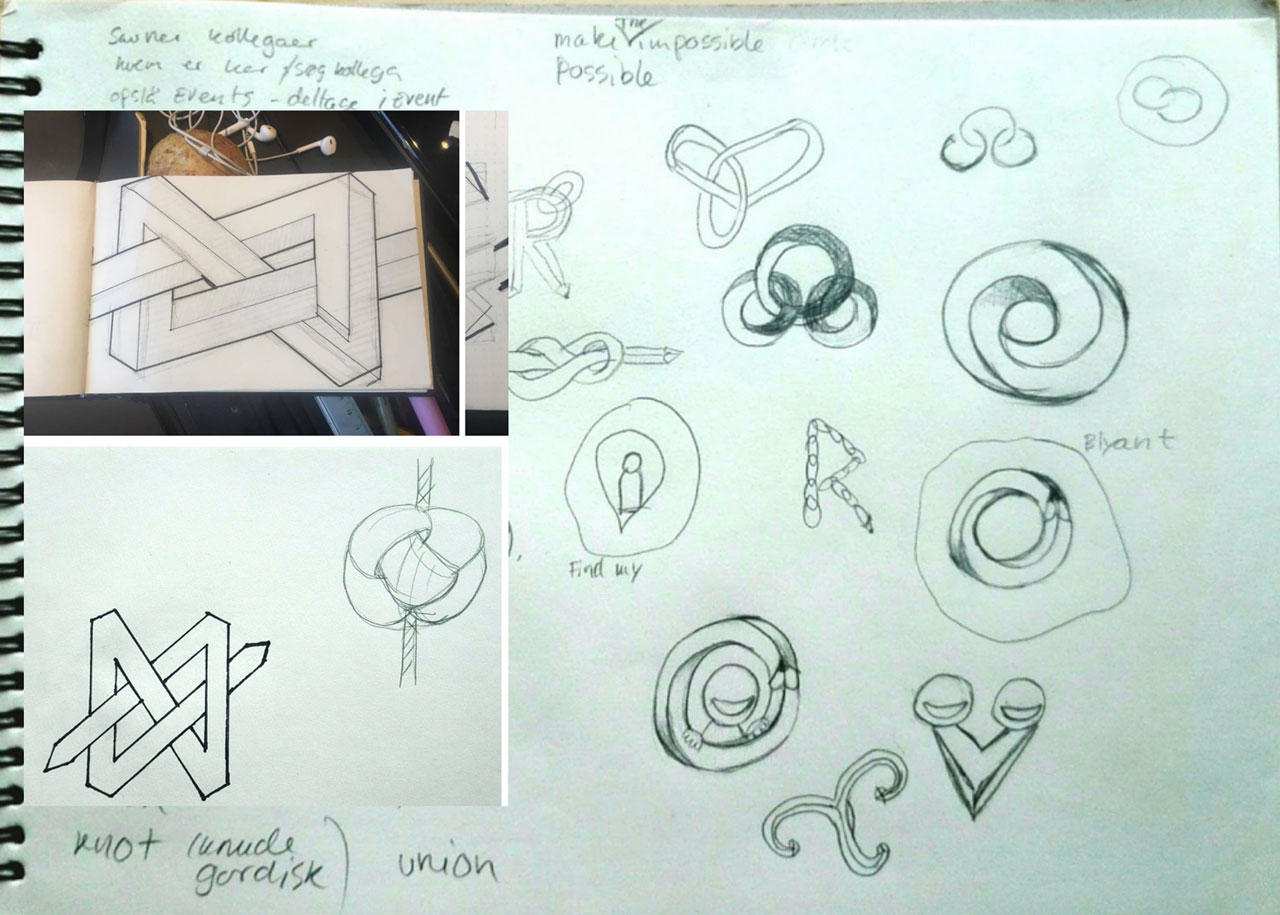 Savner kollegaer
hvem er her / søg kollega
opslå Events - deltage i Event
make The impossible
Possible
Blyant
Find my
knot (knude
gordisk)
union